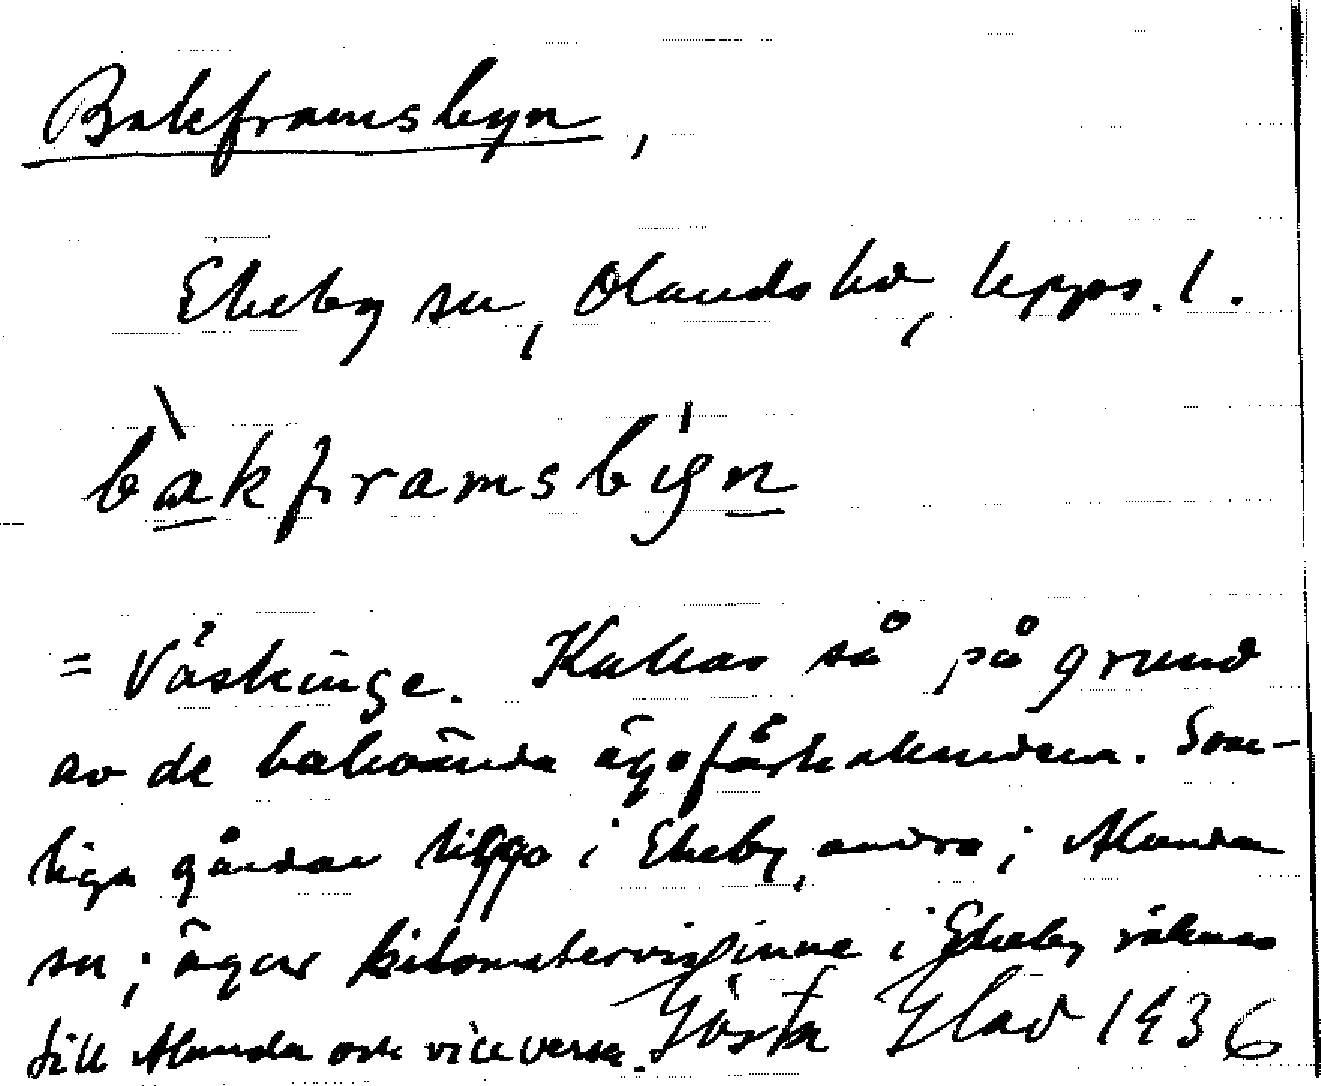 Bakframsbyn,
Ekeby sn, Olands hd, Upps. l.
bakframsbyn
= Väskinge. Kallas så på grund
av de bakvända ägoförhållandena. Som-
liga gårdar ligga i Ekeby, andra i Alunda
sn; ägor kilometervis inne i Ekeby räknas
till Alunda och vice versa. Gösta Elad 1936